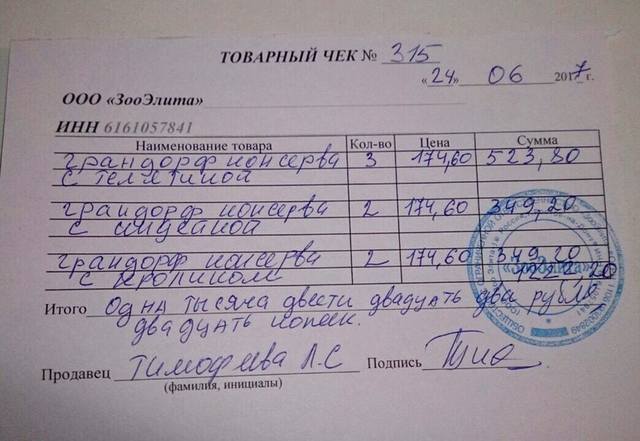 ТОВАРНЫЙ ЧЕК № 315
«24» 06 2017 г.
ООО «ЗооЭлита»
ИНН 6161057841
Наименование товара Кол-во Цена Сумма
грандорф консерва 3 174,60 523,80
с телятиной
грандорф консерва 2 174,60 349,20
с индейкой
грандорф консерва 2 174,60 349,20
с кроликом 1222,20
Итого одна тысяча двести двадцать два рубля
двадцать копеек.
Продавец Тимофеева Л.С Подпись
(фамилия, инициалы)
«ЗооЭлита»